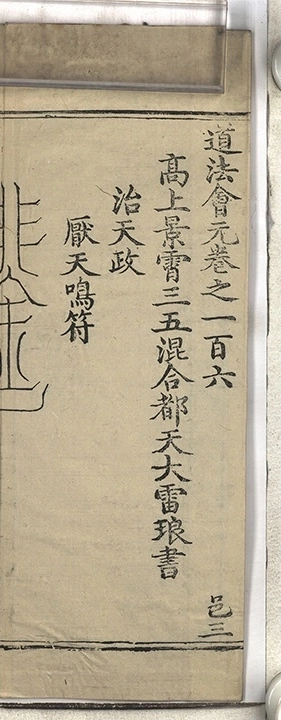 道法會元卷之一百六
邑三
高上景霄三五混合都天大雷琅書
治天政
厭天鳴符